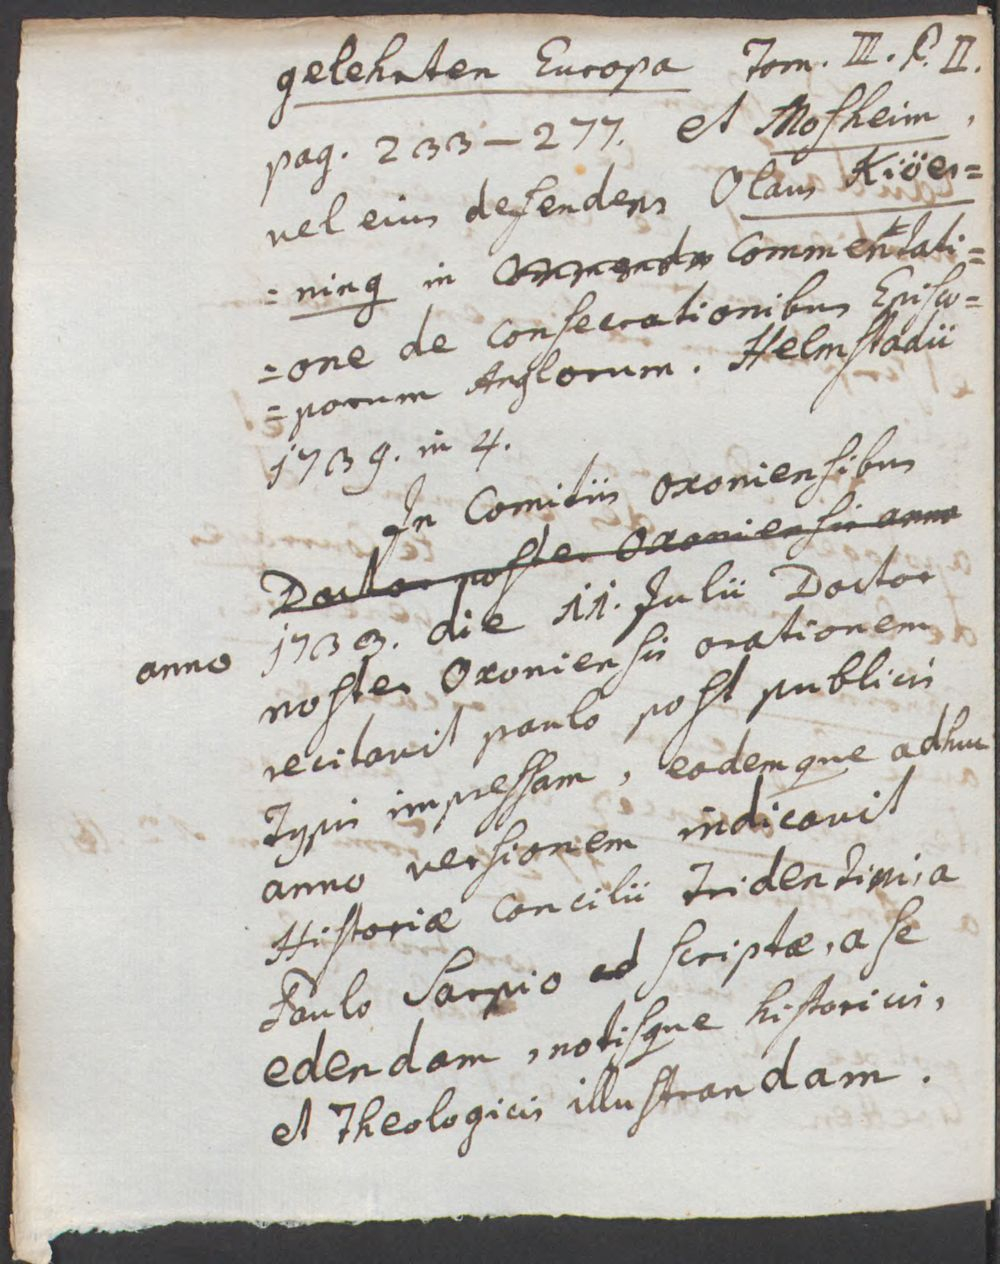 gelehrten Europa Tom. III. P. II.
pag. 233–277. et Mosheim,
vel eius defendens Olaus Kiöer=
=ning in Commentati=
=one de consecrationibus Episco=
=porum Anglorum. Helmstadii
1739. in 4.
In Comitiis Oxoniensibus
Doctor noster Oxoniensis anno
anno 1733. die 11. Julii Doctor
noster Oxoniensis orationem
recitavit paulo post publicis
typis impressam, eodemque adhuc
anno versionem indicavit
Historiæ Concilii Tridentini, a
Paulo Sarpio ad scriptæ, a se
edendam, notisque historicis,
et Theologicis illustrandam.